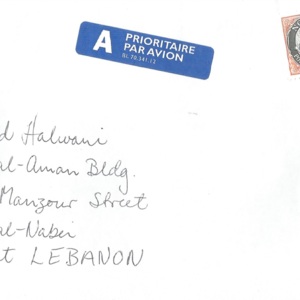 A PRIORITAIRE
PAR AVION
BL 70.341 12
d Halwani
al-Aman Bldg.
Manzour Street
al-Nabi
t LEBANON